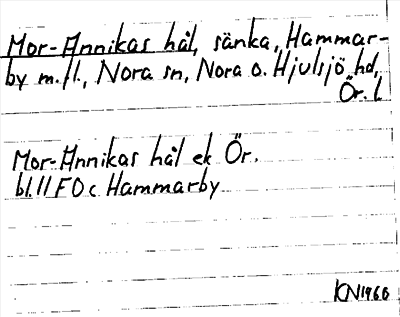 Mor-Annikas hål, sänka, Hammar-
by m.fl., Nora sn, Nora o. Hjulsjö hd,
Ör. l
Mor-Annikas hål ek Ör.
bl. 11 F 0 c Hammarby
KN 1966